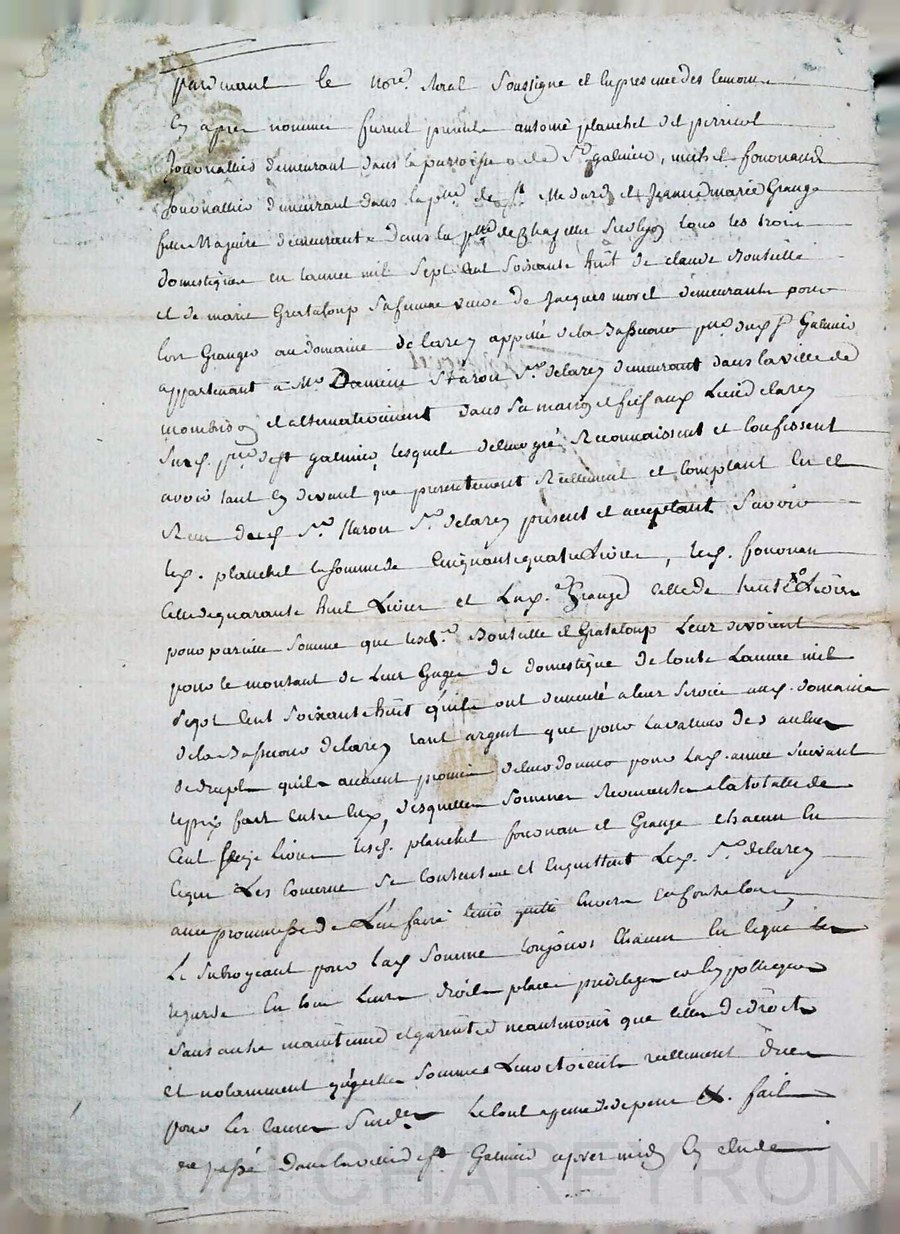 pardevant le no.re Royal soussigne et en presence des temoins
cy apres nommes furent presents antoine planchet dit perricol
Journallier demeurant dans la parroisse de St galmier, michel fouonand
Journallier demeurant dans la p.sse de St Medard et Jeanne marie Grange
fille Majeure demeurante dans la p.sse de Chapelle tous les trois
domestiques en l'annee mil sept cent soixante huit de claude Bouteille
et de marie Grataloup sa femme veuve de Jacques morel demeurants pour
lors Grangers au domaine de larey appellé de la Basseour p.sse dud. St Galmier
appartenant a Mr Damien Staron Sr delarey demeurant dans la ville de
mombrison et alternativement dans sa maison et fief aud. Lieu de larey
Susd. p.sse de St galmier, lesquels de leur gré Reconnaissent et Confessent
avoir tant cy devant que presentement Reellement et Comptant eu et
Receu dud. Sr Staron Sr delarey present et acceptant Savoir
led. planchet la somme de Cinquante quatre Livres, led. fouonan
Celle de quarante huit Livres et Lad. Grange Celle de Livres
pour pareille somme que lesd. Bouteille et Grataloup Leur devoient
pour le montant de Leur Gages de domestique de toute L'annee mil
Sept Cent Soixante huit qu'ils ont demeuré a leur Service aud. domaine
de la Basseour delarey tant argent que pour la valeur des aulnes
de drap qu'ils avoient promis de leur donner pour Lad. annee Suivant
le prix fait entre eux, desquelles Sommes Revenantes a la totalle de
Cent Seize Livres lesd. planchet fouonan et Grange chacun en
ce qui Les Concerne Se Contentent et en quittent Led. Sr delarey
avec promesse de L'en faire tenir quitte envers et contre tous
Le Subrogeant pour lad. Somme toujours Chacun en ce qui les
regarde en tous Leurs droits place privileges et hypotheques
Sans autre maintenue et garentie neantmoins que celle de droit
et notamment que lesdites Sommes Leur etoient reellement Dues
pour Les Causes Susdites Le tout a peine de depens &. fait
et passé dans la ville de St Galmier apres midy en etude
Pascal CHAREYRON